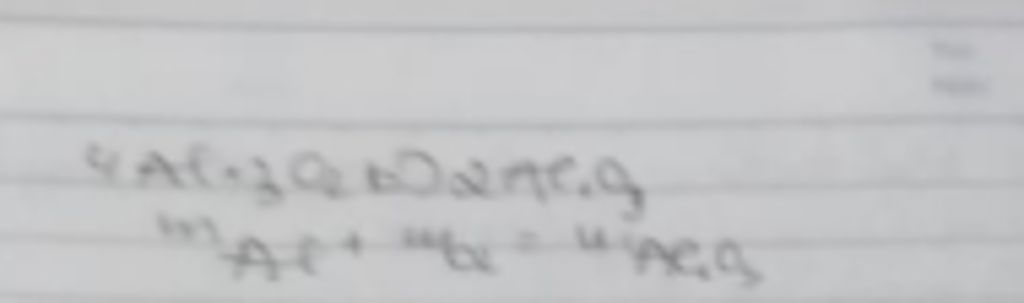 4Al + 3O₂ → 2Al₂O₃
mAl + mO₂ = mAl₂O₃